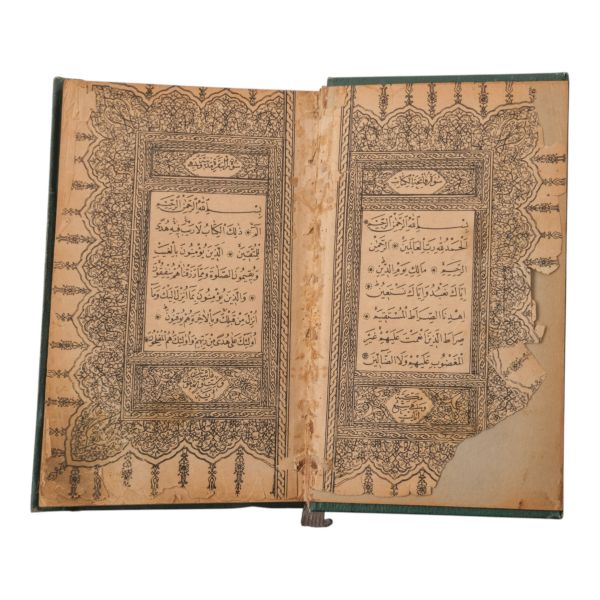 سورة فاتحة الكتاب
بسم الله الرحمن الرحيم
الحمد لله رب العالمين ۞ الرحمن
الرحيم ۞ مالك يوم الدين ۞
اياك نعبد واياك نستعين ۞
اهدنا الصراط المستقيم ۞
صراط الذين انعمت عليهم غير
المغضوب عليهم ولا الضالين
سورة البقرة
بسم الله الرحمن الرحيم
الم ۞ ذلك الكتاب لا ريب فيه هدى
للمتقين ۞ الذين يؤمنون بالغيب
ويقيمون الصلوة ومما رزقناهم ينفقون
۞ والذين يؤمنون بما انزل اليك وما
انزل من قبلك وبالآخرة هم يوقنون ۞
اولئك على هدى من ربهم واولئك هم المفلحون